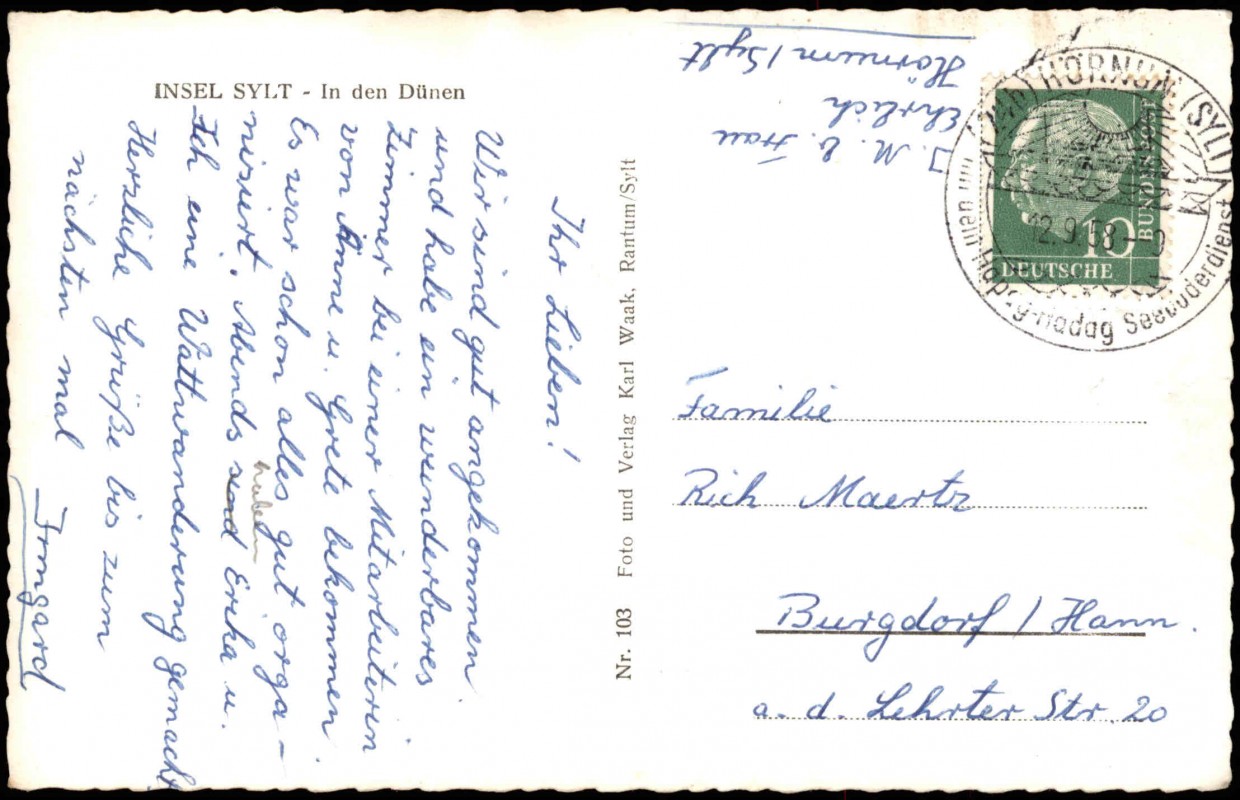 INSEL SYLT - In den Dünen
Ihr Lieben!
Wir sind gut angekommen
und habe ein wunderbares
Zimmer bei einer Mitarbeiterin
von Änne u. Grete bekommen.
Es war schon alles gut orga-
nisiert. Abends sind haben Erika u.
Ich eine Wattwanderung gemacht
Herzliche Grüße bis zum
nächsten mal
Irmgard
Nr. 103 Foto und Verlag Karl Waak, Rantum/Sylt
J. M. b. Frau
Ehrlich
Hörnum/Sylt
HÖRNUM (SYLT)
12.9.58
Hapag-Hadag Seebäderdienst
10
DEUTSCHE
BUNDESPOST
Familie
Rich Maertz
Burgdorf / Hann.
a. d. Lehrter Str. 20